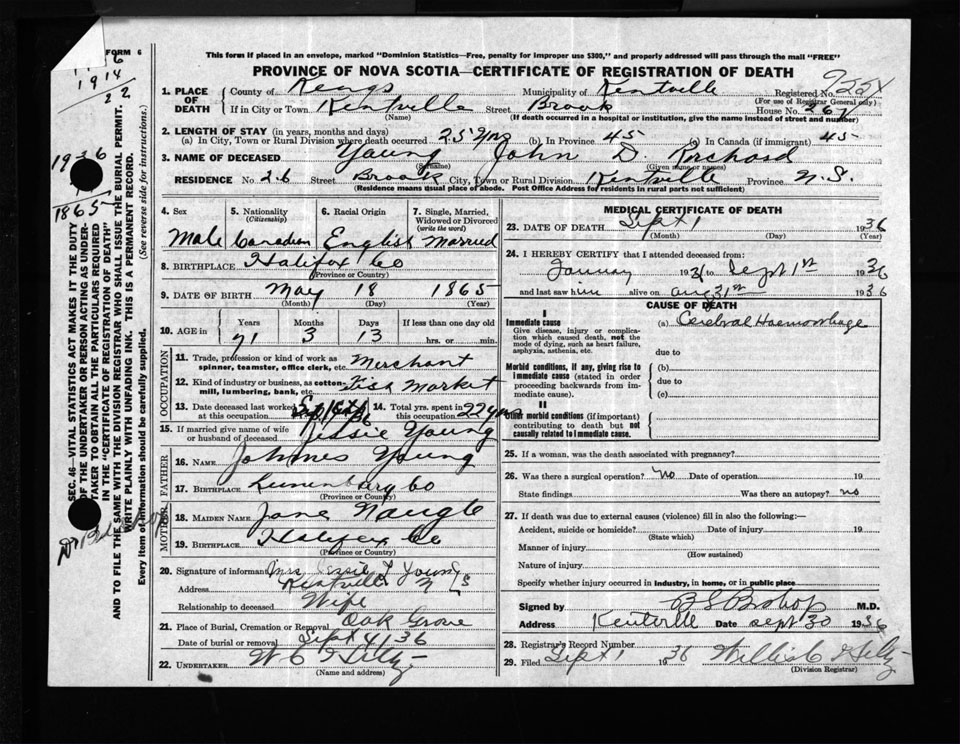 FORM 6
This form if placed in an envelope, marked "Dominion Statistics—Free, penalty for improper use $300," and properly addressed will pass through the mail "FREE"
PROVINCE OF NOVA SCOTIA—CERTIFICATE OF REGISTRATION OF DEATH
1914
22
1936
1865
SEC. 46—VITAL STATISTICS ACT MAKES IT THE DUTY
OF THE UNDERTAKER OR PERSON ACTING AS UNDER-
TAKER TO OBTAIN ALL THE PARTICULARS REQUIRED
IN THE "CERTIFICATE OF REGISTRATION OF DEATH"
AND TO FILE THE SAME WITH THE DIVISION REGISTRAR WHO SHALL ISSUE THE BURIAL PERMIT.
WRITE PLAINLY WITH UNFADING INK. THIS IS A PERMANENT RECORD.
Every item of information should be carefully supplied. (See reverse side for instructions.)
1. PLACE OF DEATH County of Kings Municipality of Kentville Registered No.
(For use of Registrar General only)
If in City or Town Kentville Street Brook House No. 267
(Name) (If death occurred in a hospital or institution, give the name instead of street and number)
2. LENGTH OF STAY (in years, months and days)
(a) In City, Town or Rural Division where death occurred 25 yrs (b) In Province 45 (c) In Canada (if immigrant) 45
3. NAME OF DECEASED Young John D.
(Surname) (Given name or names)
RESIDENCE No. 26 Street Brook City, Town or Rural Division Kentville Province N.S.
(Residence means usual place of abode. Post Office Address for residents in rural parts not sufficient)
4. Sex Male
5. Nationality (Citizenship) Canadian
6. Racial Origin English
7. Single, Married, Widowed or Divorced (write the word) Married
8. BIRTHPLACE Halifax Co
(Province or Country)
9. DATE OF BIRTH May 18 1865
(Month) (Day) (Year)
10. AGE in Years Months Days If less than one day old
71 3 13 hrs. or min.
OCCUPATION
11. Trade, profession or kind of work as spinner, teamster, office clerk, etc. Merchant
12. Kind of industry or business, as cotton mill, lumbering, bank, etc. Fish Market
13. Date deceased last worked at this occupation
14. Total yrs. spent in this occupation 22 yrs
15. If married give name of wife or husband of deceased Jessie Young
FATHER
16. Name Johnnes Young
17. Birthplace Lunenburg Co
(Province or County)
MOTHER
18. Maiden Name Jane Naugle
19. Birthplace Halifax Co
(Province or Country)
20. Signature of informant Mrs Jessie L Young
Address Kentville N S
Relationship to deceased Wife
21. Place of Burial, Cremation or Removal Oak Grove
Date of burial or removal Sept 4/36
22. UNDERTAKER
(Name and address)
MEDICAL CERTIFICATE OF DEATH
23. DATE OF DEATH Sept 1 1936
(Month) (Day) (Year)
24. I HEREBY CERTIFY that I attended deceased from:
January 193 to Sept 1st 1936
and last saw him alive on Aug 31st 1936
CAUSE OF DEATH
I
Immediate cause (a) Cerebral Haemorrhage
Give disease, injury or complication which caused death, not the mode of dying, such as heart failure, asphyxia, asthenia, etc.
due to
Morbid conditions, if any, giving rise to immediate cause (stated in order proceeding backwards from immediate cause).
(b)
due to
(c)
II
Other morbid conditions (if important) contributing to death but not causally related to immediate cause.
25. If a woman, was the death associated with pregnancy?
26. Was there a surgical operation? No Date of operation 19
State findings Was there an autopsy? no
27. If death was due to external causes (violence) fill in also the following:—
Accident, suicide or homicide? Date of injury 19
(State which)
Manner of injury
(How sustained)
Nature of injury
Specify whether injury occurred in industry, in home, or in public place
Signed by B S Bishop M.D.
Address Kentville Date Sept 30 1936
28. Registrar's Record Number
29. Filed Sept 1 1936
(Division Registrar)